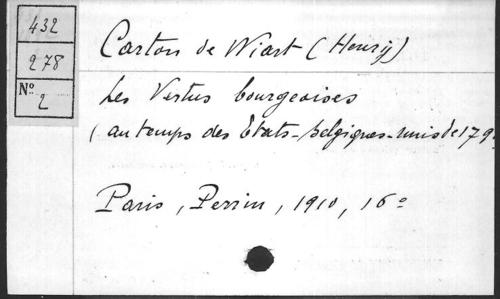 432
278
No 2
Carton de Wiart (Henry)
Les Vertus bourgeoises
(au temps des Etats-belgiques-unis de 179
Paris, Perrin, 1910, 16º